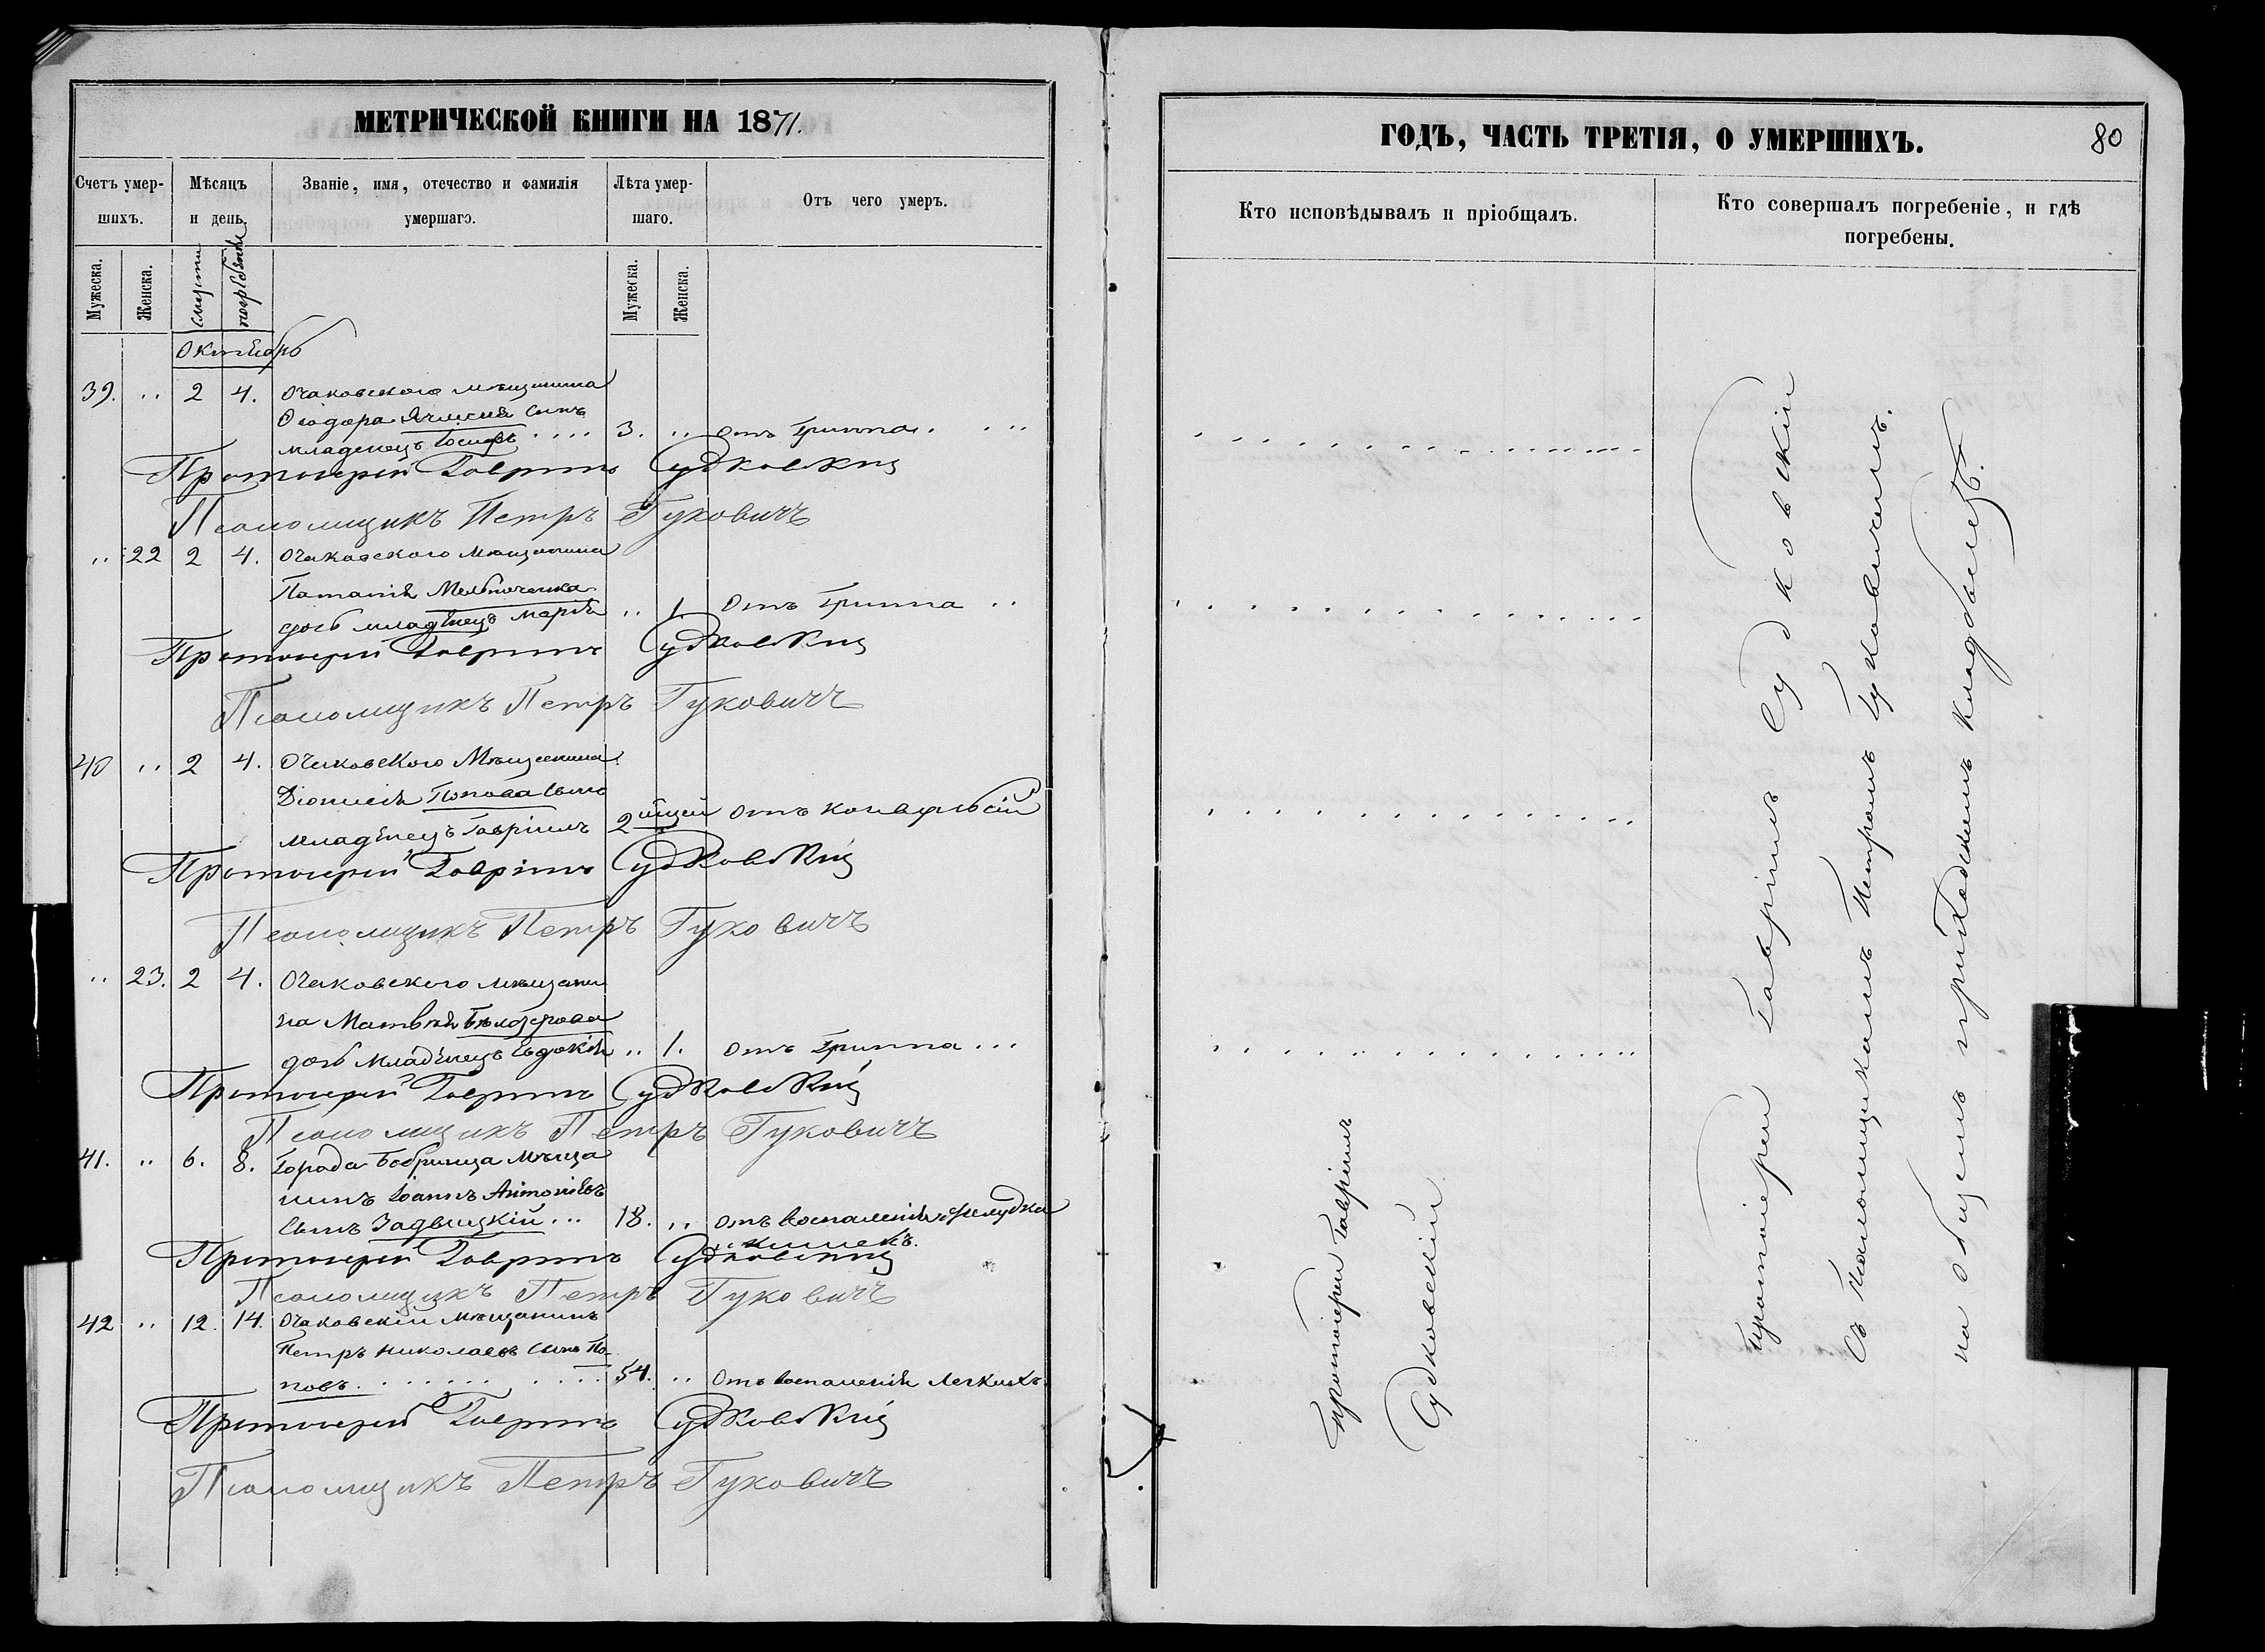 МЕТРИЧЕСКОЙ КНИГИ НА 1871.
Счетъ умер-
шихъ.
Мѣсяцъ
и день.
Званіе, имя, отечество и фамилія
умершаго.
Лѣта умер-
шаго.
Отъ чего умеръ.
Мужеска.
Женска.
смерти
погребенія
Мужеска.
Женска.
Октябрь
39. .. 2 4. Очаковского мѣщанина
Ѳеодора сынъ
младенецъ Іосифъ .... 3. .. отъ гриппа. ...
Протоіерей Гавріилъ Судковскій
Псаломщикъ Петръ Гуковичъ
.. 22 2 4. Очаковского мѣщанина
Потапія Мельниченка
дочь младенецъ Марія .. 1. Отъ гриппа ..
Протоіерей Гавріилъ Судковскій
Псаломщикъ Петръ Гуковичъ
40 .. 2 4. Очаковского Мѣщанина
Діонисія Попова сынъ
младенецъ Гавріилъ 2 отъ конвульсій
Протоіерей Гавріилъ Судковскій
Псаломщикъ Петръ Гуковичъ
.. 23. 2 4. Очаковского мѣщани
на Матвѣя Бѣлозерова
дочь младенецъ Евдокія .. 1. отъ гриппа ...
Протоіерей Гавріилъ Судковскій
Псаломщикъ Петръ Гуковичъ
41. .. 6. 8. Города Бобринца мѣща
нинъ Іоаннъ Антоніевъ
сынъ Задвицкій ... 18. .. отъ воспаленія желудка
и кишекъ.
Протоіерей Гавріилъ Судковскій
Псаломщикъ Петръ Гуковичъ
42 .. 12. 14. Очаковскій мѣщанинъ
Петръ Николаевъ сынъ По-
повъ. 54. .. Отъ воспаленія легкихъ.
Протоіерей Гавріилъ Судковскій
Псаломщикъ Петръ Гуковичъ
ГОДЪ, ЧАСТЬ ТРЕТІЯ, О УМЕРШИХЪ.
80
Кто исповѣдывалъ и пріобщалъ.
Кто совершалъ погребеніе, и гдѣ
погребены.
Протоіерей Гавріилъ
Судковскій
Протоіерей Гавріилъ Судковскій
съ Псаломщикомъ Петромъ Гуковичемъ.
на общемъ приходскомъ кладбищѣ.